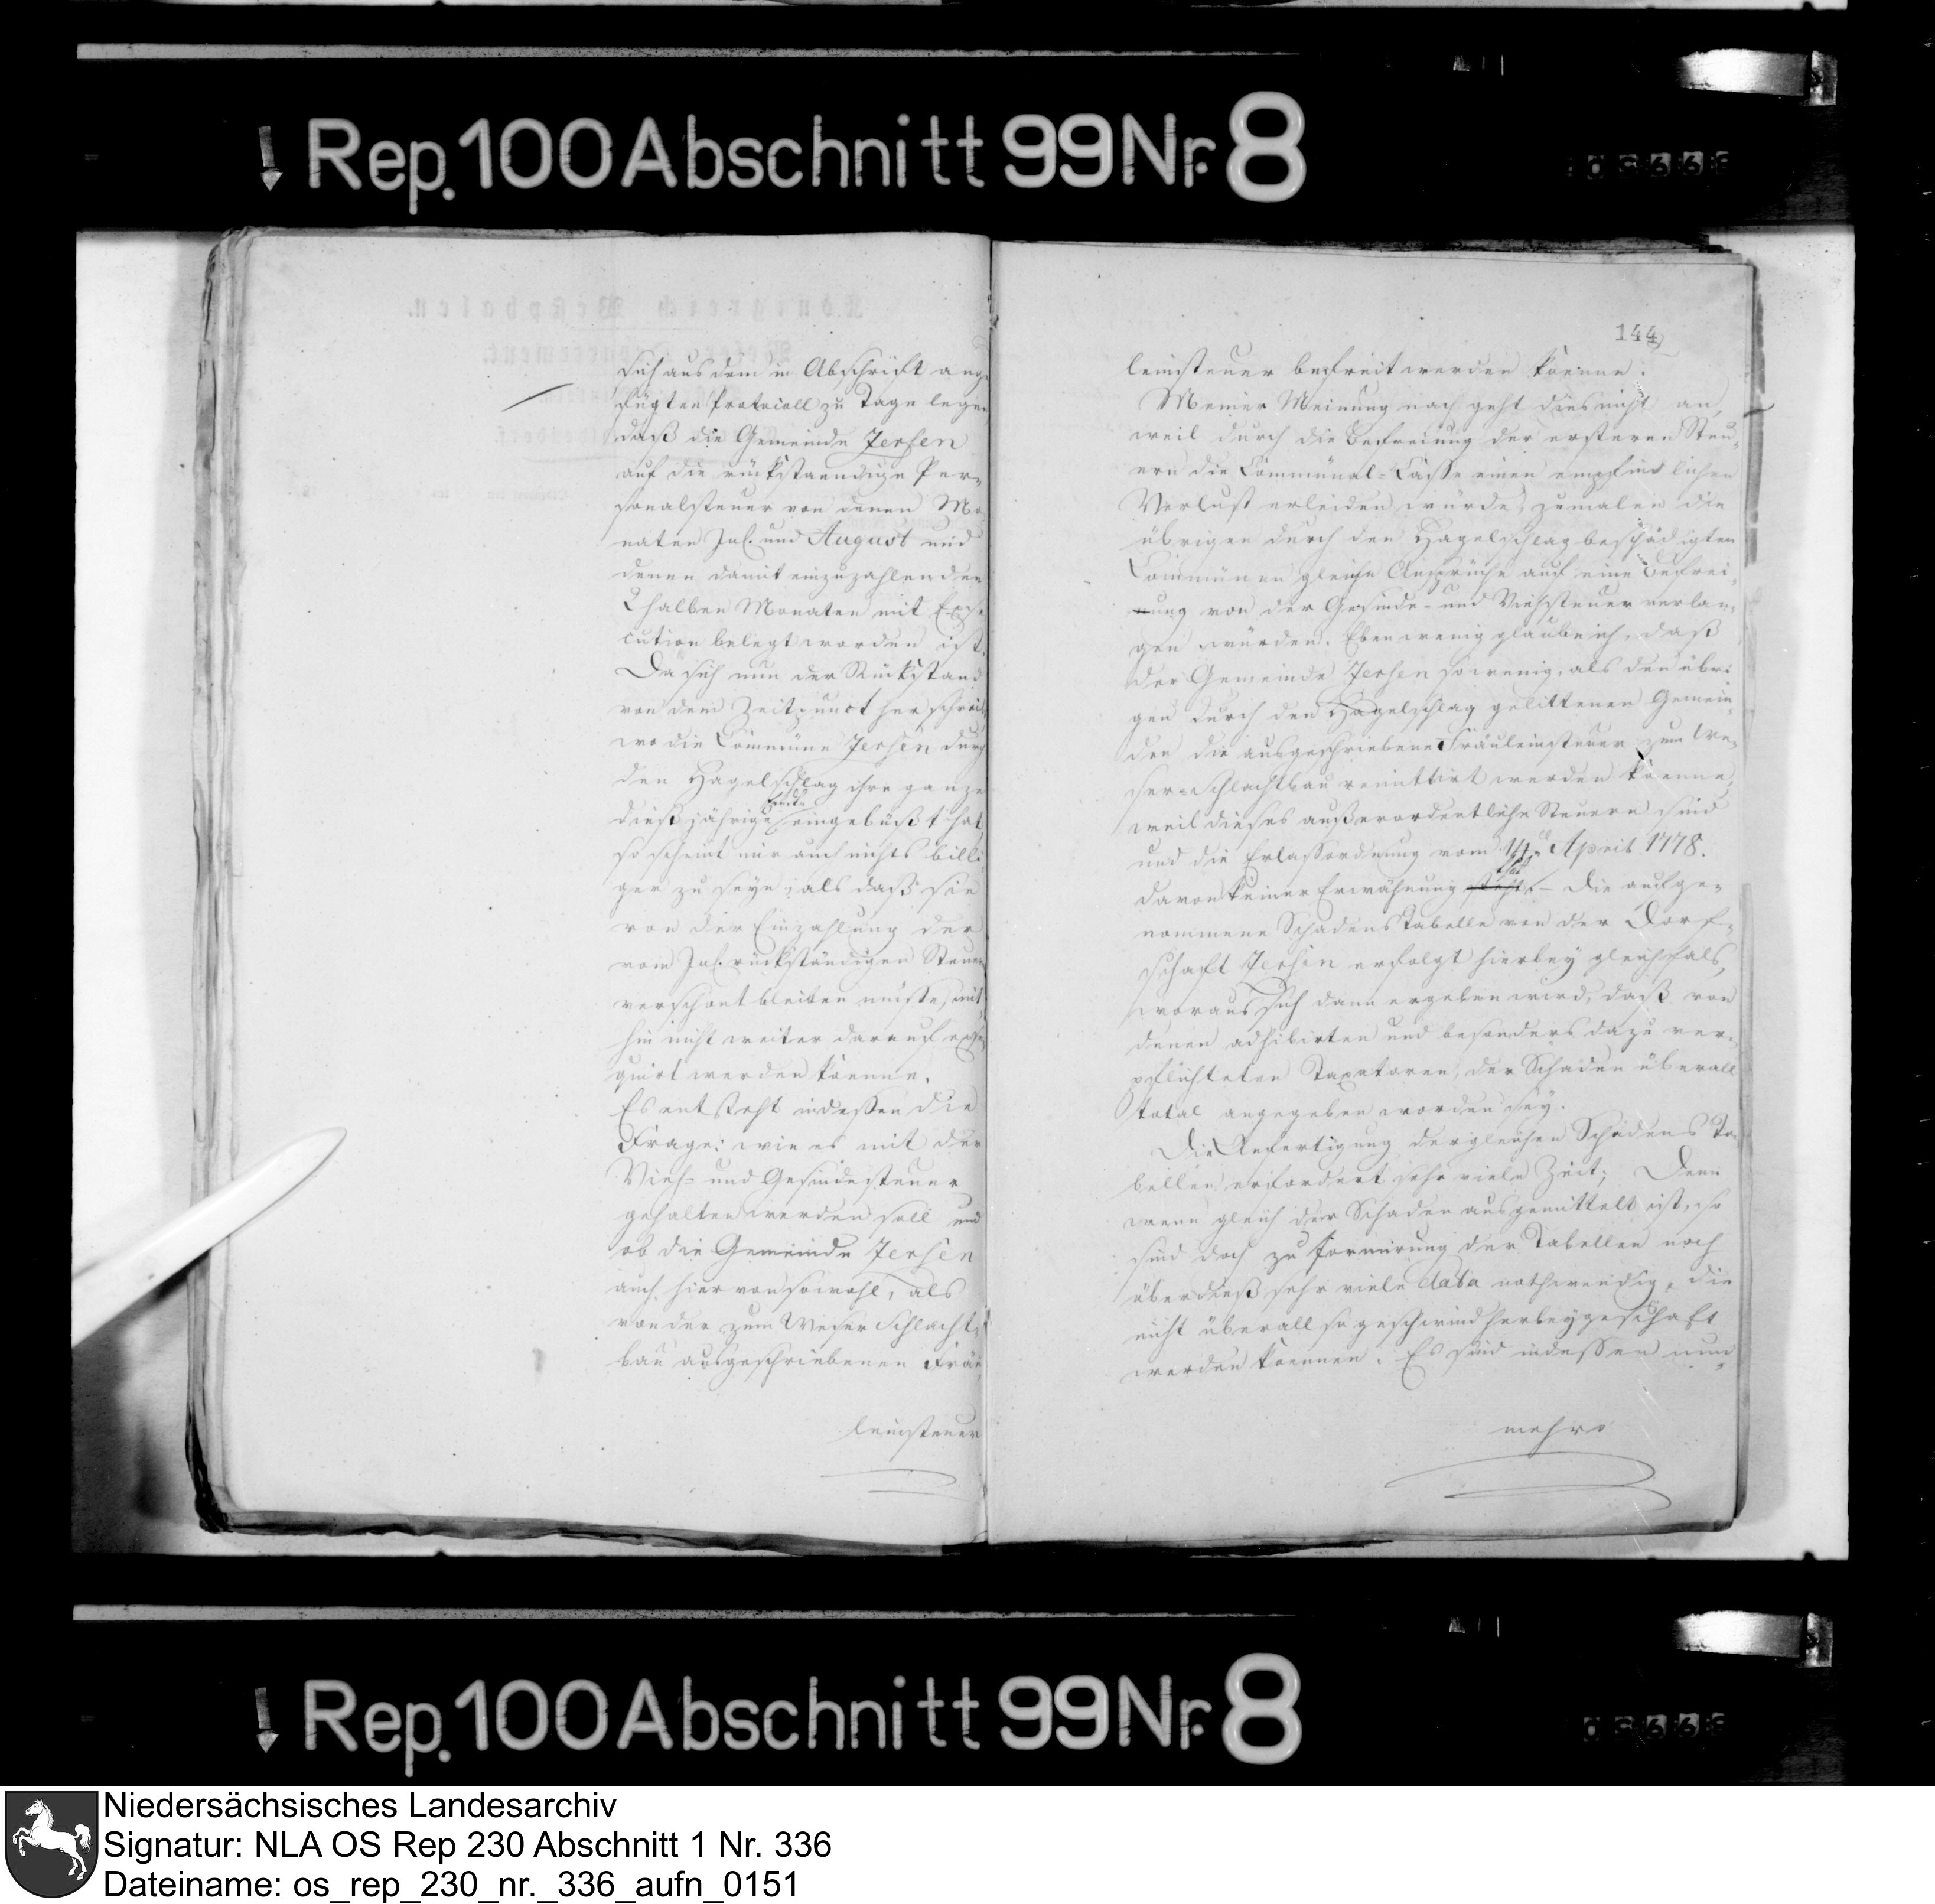 Rep. 100 Abschnitt 99 Nr. 8
sich aus dem in Abschrift ange
fügten Protocoll zu Tage legen
daß die Gemeinde Jersen
auf die rückstaendige Per-
sonalsteuer von denen Mo
naten Jul. und August und
denen damit einzuzahlenden
2 halben Monaten mit Exe-
cution belegt worden ist.
Da sich nun der Rückstand
von dem Zeitpunct her schreibt
wo die Commüne Jersen durch
den Hagelschlag ihre ganze
dießjährige Erndte eingebüßt hat,
so scheint mir auch nichts billi
ger zu seyn, als daß sie
von der Einzahlung der
vom Jul. rückständigen Steuern
verschont bleiben müsse, mit
hin nicht weiter darauf exe
quirt werden koenne.
Es entsteht indeßen die
Frage: wie es mit der
Vieh- und Gesindesteuer
gehalten werden soll und
ob die Gemeinde Jersen
auch hiervon sowohl, als
von der zum Weser Schlacht-
bau ausgeschriebenen Fräu
leinsteuer
144
leinsteuer befreit werden koenne.
Meiner Meinung nach geht dies nicht an,
weil durch die Befreiung der ersteren Steu-
ern die Commünal-Casse einen empfindlichen
Verlust erleiden würde, zumalen die
übrigen durch den Hagelschlag beschädigten
Commünen gleiche Ansprüche auf eine Befrei-
ung von der Gesinde- und Viehsteuer verlan-
gen würden. Eben wenig glaube ich, daß
der Gemeinde Jersen so wenig, als den übri
gen durch den Hagelschlag gelittenen Gemein
den die ausgeschriebene Fräuleinsteuer zum We-
ser-Schlachtbau remittirt werden koenne,
weil dieses außerordentliche Steuern sind
und die Erlaßordnung vom 14. April 1778.
davon keiner Erwähnung thut. - Die aufge-
nommene Schadens Tabelle von der Dorf-
schaft Jersen erfolgt hierbey gleichfals,
woraus sich dann ergeben wird, daß von
denen adhibirten und besonders dazu ver-
pflichteten Taxatoren, der Schaden überall
total angegeben worden sey.
Die Anfertigung dergleichen Schadens Ta-
bellen erfordert sehr viele Zeit; Denn
wenn gleich der Schaden ausgemittelt ist, so
sind doch zu Formirung der Tabellen noch
überdieß sehr viele data nothwendig, die
nicht überall so geschwind herbeygeschaft
werden koennen. Es sind indessen nun
mehro
Rep. 100 Abschnitt 99 Nr. 8
Niedersächsisches Landesarchiv
Signatur: NLA OS Rep 230 Abschnitt 1 Nr. 336
Dateiname: os_rep_230_nr._336_aufn_0151